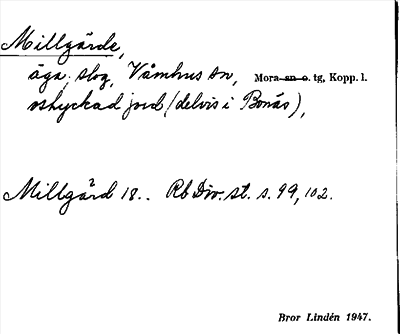 Millgärde,
äga, slog, Våmhus sn, Mora sn o. tg, Kopp. l.
oskyckad jord (delvis i Bonäs),
Millgård 18.. Rb Div. st. s. 99, 102.
Bror Lindén 1947.